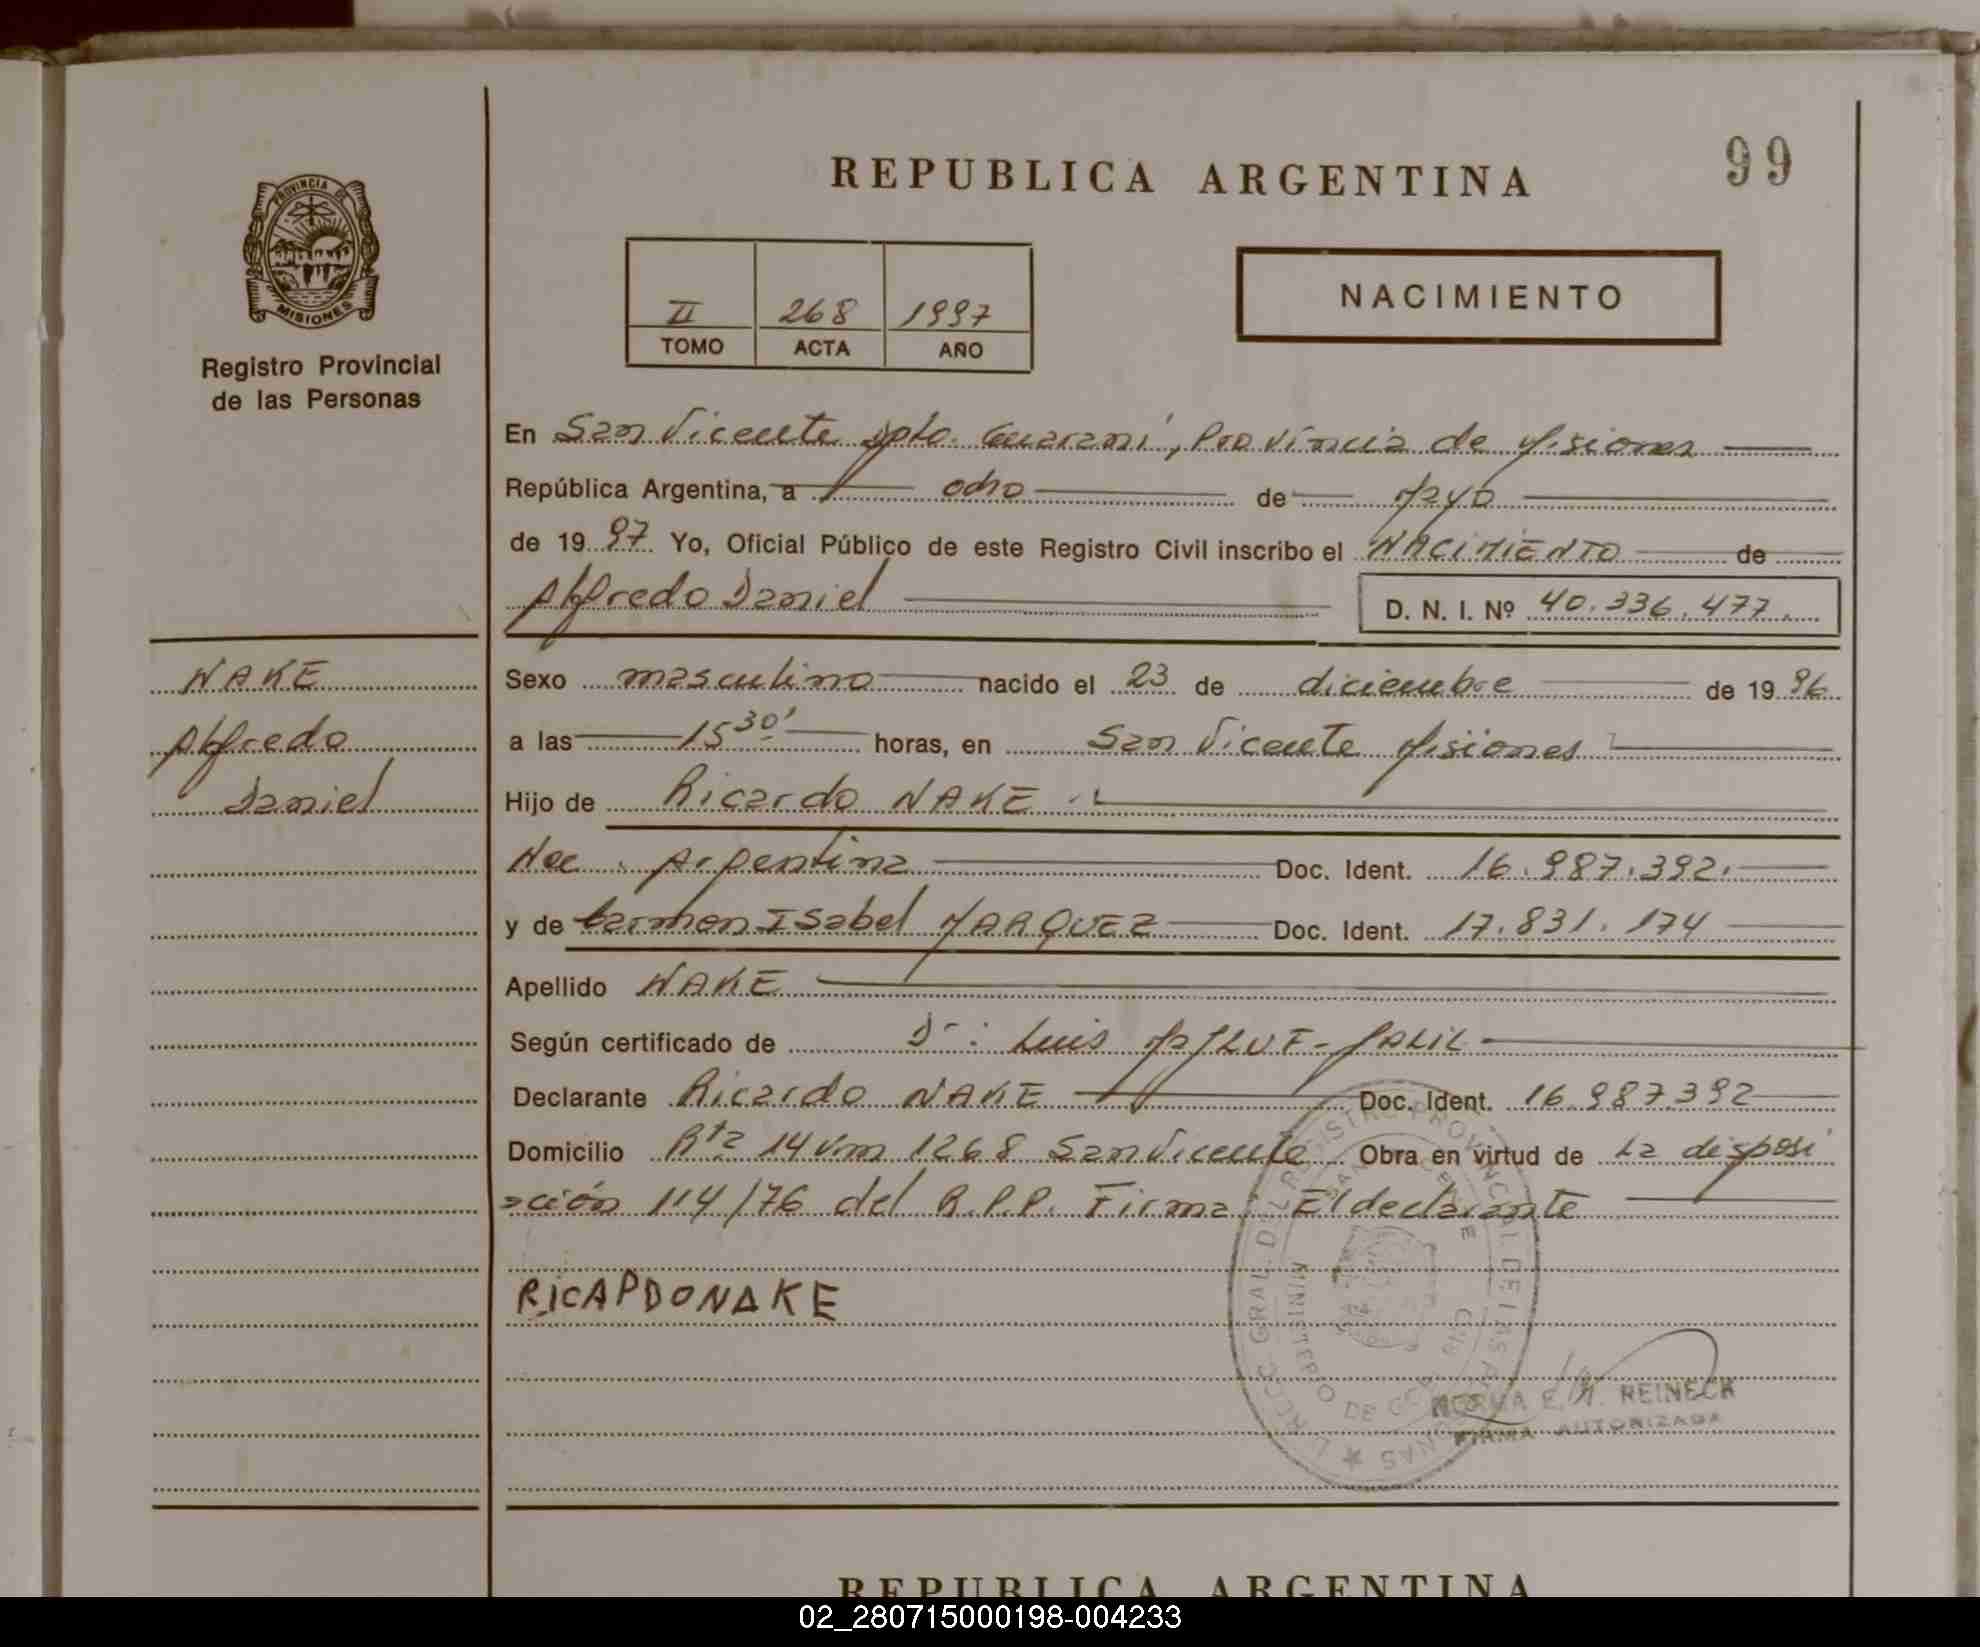 REPUBLICA ARGENTINA
99
PROVINCIA DE
MISIONES
Registro Provincial
de las Personas
II 268 1997
TOMO ACTA AÑO
NACIMIENTO
En San Vicente Dpto. Guaraní, Provincia de Misiones
República Argentina, a ocho de Mayo
de 1997 Yo, Oficial Público de este Registro Civil inscribo el NACIMIENTO de
Alfredo Daniel
D. N. I. Nº 40.336.477.
NAKE
Alfredo
Daniel
Sexo masculino nacido el 23 de diciembre de 1996
a las 15 30' horas, en San Vicente Misiones
Hijo de Ricardo NAKE
Nac. Argentina Doc. Ident. 16.987.392.
y de Carmen Isabel MARQUEZ Doc. Ident. 17.831.174
Apellido NAKE
Según certificado de Dr: Luis
Declarante Ricardo NAKE Doc. Ident. 16.987.392
Domicilio Rta 14 Km 1268 San Vicente Obra en virtud de La disposi
ción 114/76 del R.P.P. Firma: El declarante
RicARDO NAKE
NORMA E. REINECK
FIRMA AUTORIZADA
REPUBLICA ARGENTINA
02_280715000198-004233